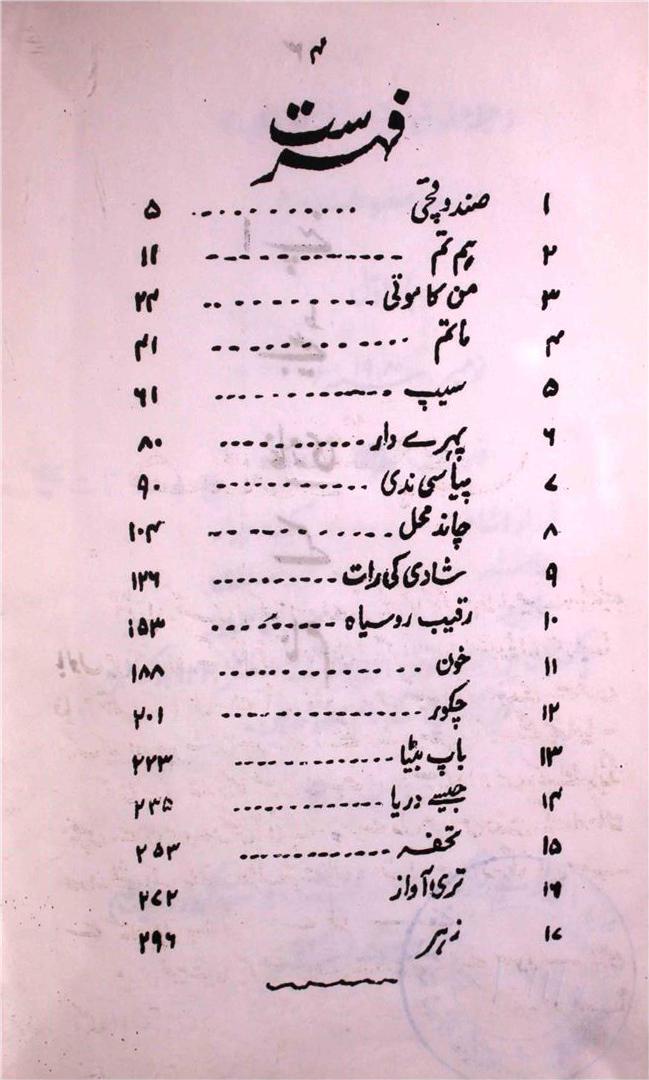 ۴
فہرست
۱ صندوقچی ۵
۲ ہم تم ۱۱
۳ من کا موتی ۲۴
۴ ماتم ۴۱
۵ سیپ ۶۱
۶ پہرے دار ۸۰
۷ پیاسی ندی ۹۰
۸ چاند محل ۱۰۴
۹ شادی کی رات ۱۲۶
۱۰ رقیب روسیاہ ۱۵۳
۱۱ خون ۱۸۸
۱۲ چکور ۲۰۱
۱۳ باپ بیٹا ۲۲۳
۱۴ جیسے دریا ۲۳۵
۱۵ تحفہ ۲۵۳
۱۶ تری آواز ۲۷۲
۱۷ زہر ۲۹۶